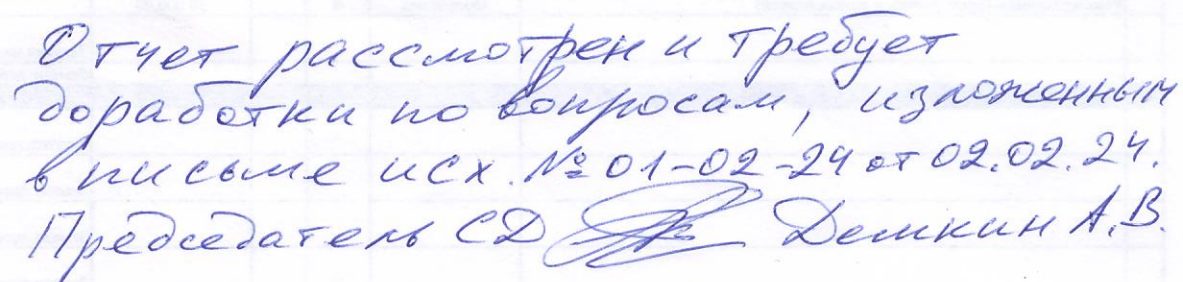 Отчет рассмотрен и требует
доработки по вопросам, изложенным
в письме исх. № 01-02-24 от 02.02.24.
Председатель СД Демкин А.В.